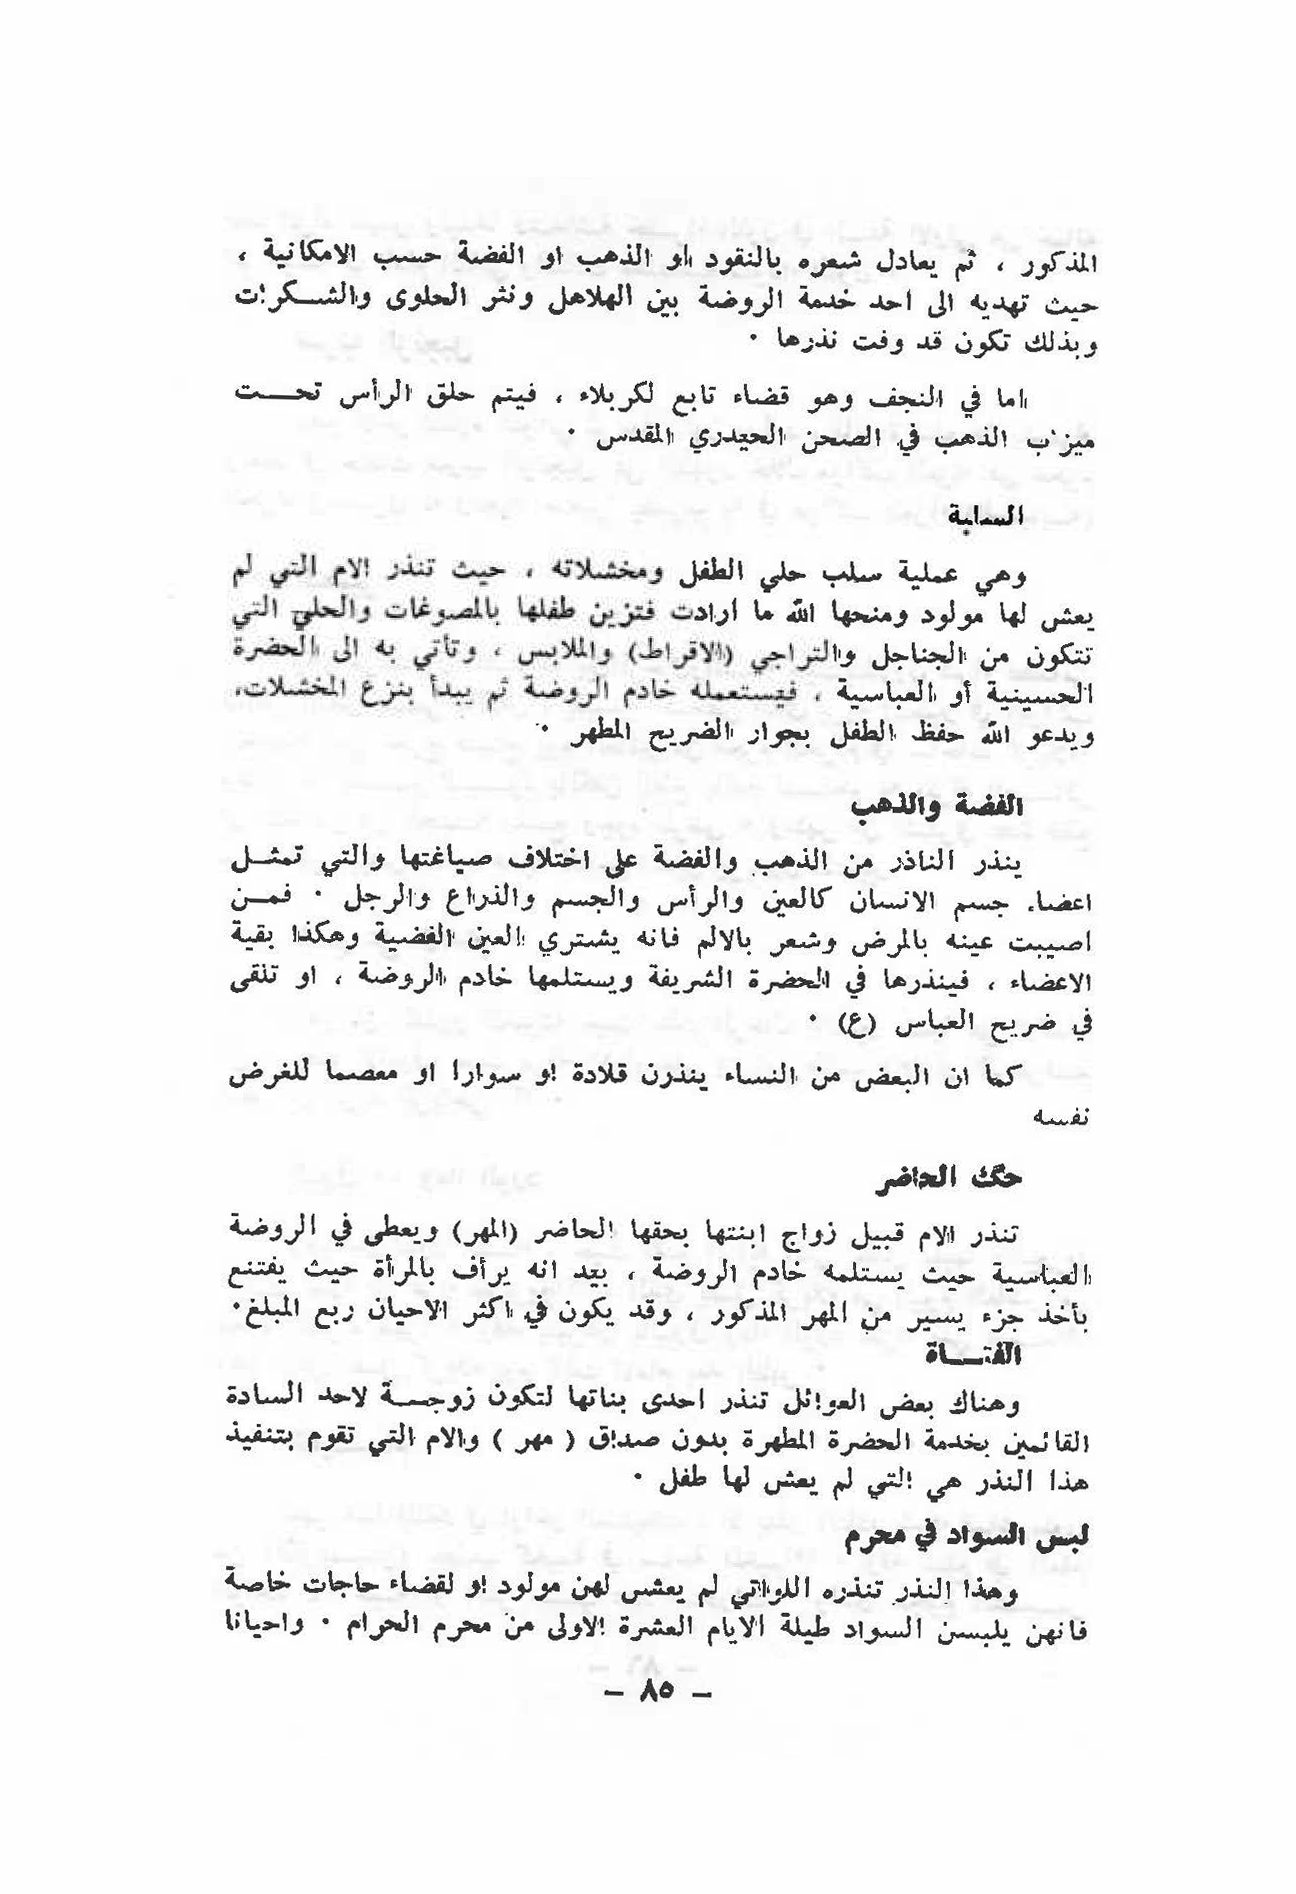 المذكور ، ثم يعادل شعره بالنقود او الذهب او الفضة حسب الامكانية ،
حيث تهديه الى احد خدمة الروضة بين الهلاهل ونثر الحلوى والشكرات
وبذلك تكون قد وفت نذرها ٠
اما في النجف وهو قضاء تابع لكربلاء ، فيتم حلق الرأس تحت
ميزاب الذهب في الصحن الحيدري المقدس ٠
السلبة
وهي عملية سلب حلي الطفل ومخشلاته ، حيث تنذر الام التي لم
يعش لها مولود ومنحها الله ما ارادت فتزين طفلها بالمصوغات والحلي التي
تتكون من الجناجل والتراجي (الاقراط) والملابس ، وتأتي به الى الحضرة
الحسينية أو العباسية ، فيستعمله خادم الروضة ثم يبدأ بنزع المخشلات،
ويدعو الله حفظ الطفل بجوار الضريح المطهر ٠
الفضة والذهب
ينذر الناذر من الذهب والفضة على اختلاف صياغتها والتي تمثل
اعضاء جسم الانسان كالعين والرأس والجسم والذراع والرجل ٠ فمن
اصيبت عينه بالمرض وشعر بالالم فانه يشتري العين الفضية وهكذا بقية
الاعضاء ، فينذرها في الحضرة الشريفة ويستلمها خادم الروضة ، او تلقى
في ضريح العباس (ع) ٠
كما ان البعض من النساء ينذرن قلادة او سوارا او معصما للغرض
نفسه
حگ الحاضر
تنذر الام قبيل زواج ابنتها بحقها الحاضر (المهر) ويعطى في الروضة
العباسية حيث يستلمه خادم الروضة ، بيد انه يرأف بالمرأة حيث يقتنع
بأخذ جزء يسير من المهر المذكور ، وقد يكون في اكثر الاحيان ربع المبلغ٠
الفتاة
وهناك بعض العوائل تنذر احدى بناتها لتكون زوجة لاحد السادة
القائمين بخدمة الحضرة المطهرة بدون صداق ( مهر ) والام التي تقوم بتنفيذ
هذا النذر هي التي لم يعش لها طفل ٠
لبس السواد في محرم
وهذا النذر تنذره اللواتي لم يعش لهن مولود او لقضاء حاجات خاصة
فانهن يلبسن السواد طيلة الايام العشرة الاولى من محرم الحرام ٠ واحيانا
– ٨٥ –